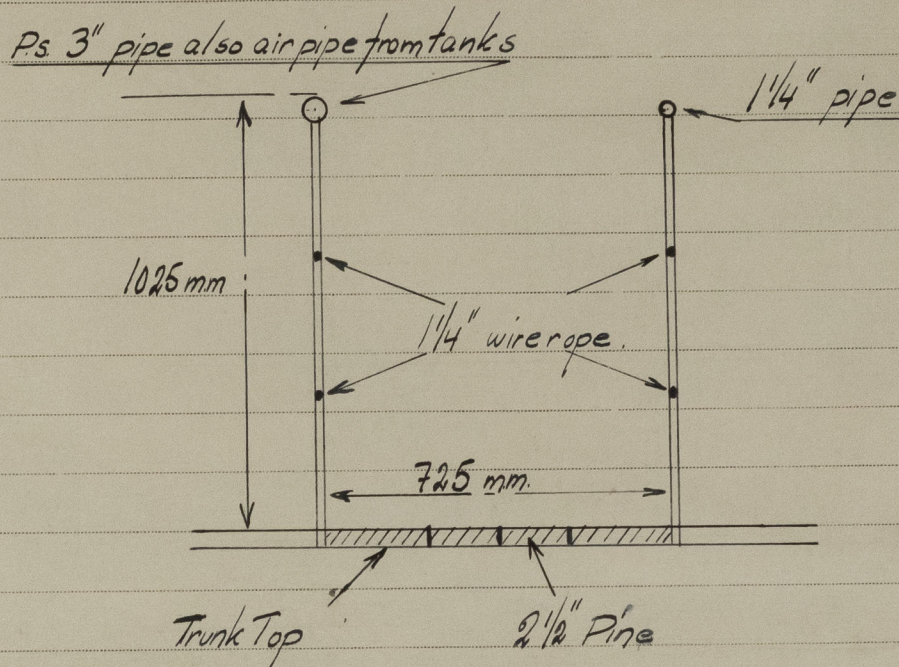 P.s. 3" pipe also air pipe from tanks
1 1/4" pipe
1025 mm
1 1/4" wire rope.
725 mm.
Trunk Top
2 1/2" Pine